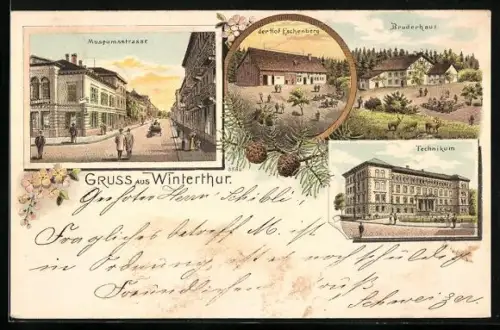 Museumsstrasse
der Hof Eschenberg
Bruderhaus
Technikum
GRUSS AUS WINTERTHUR.
Geehrter Herr Schibli;
Fragliches betreff M. ist
in Ordnung ist es noch schuldig
Freundlichen Gruß
Schweizer.